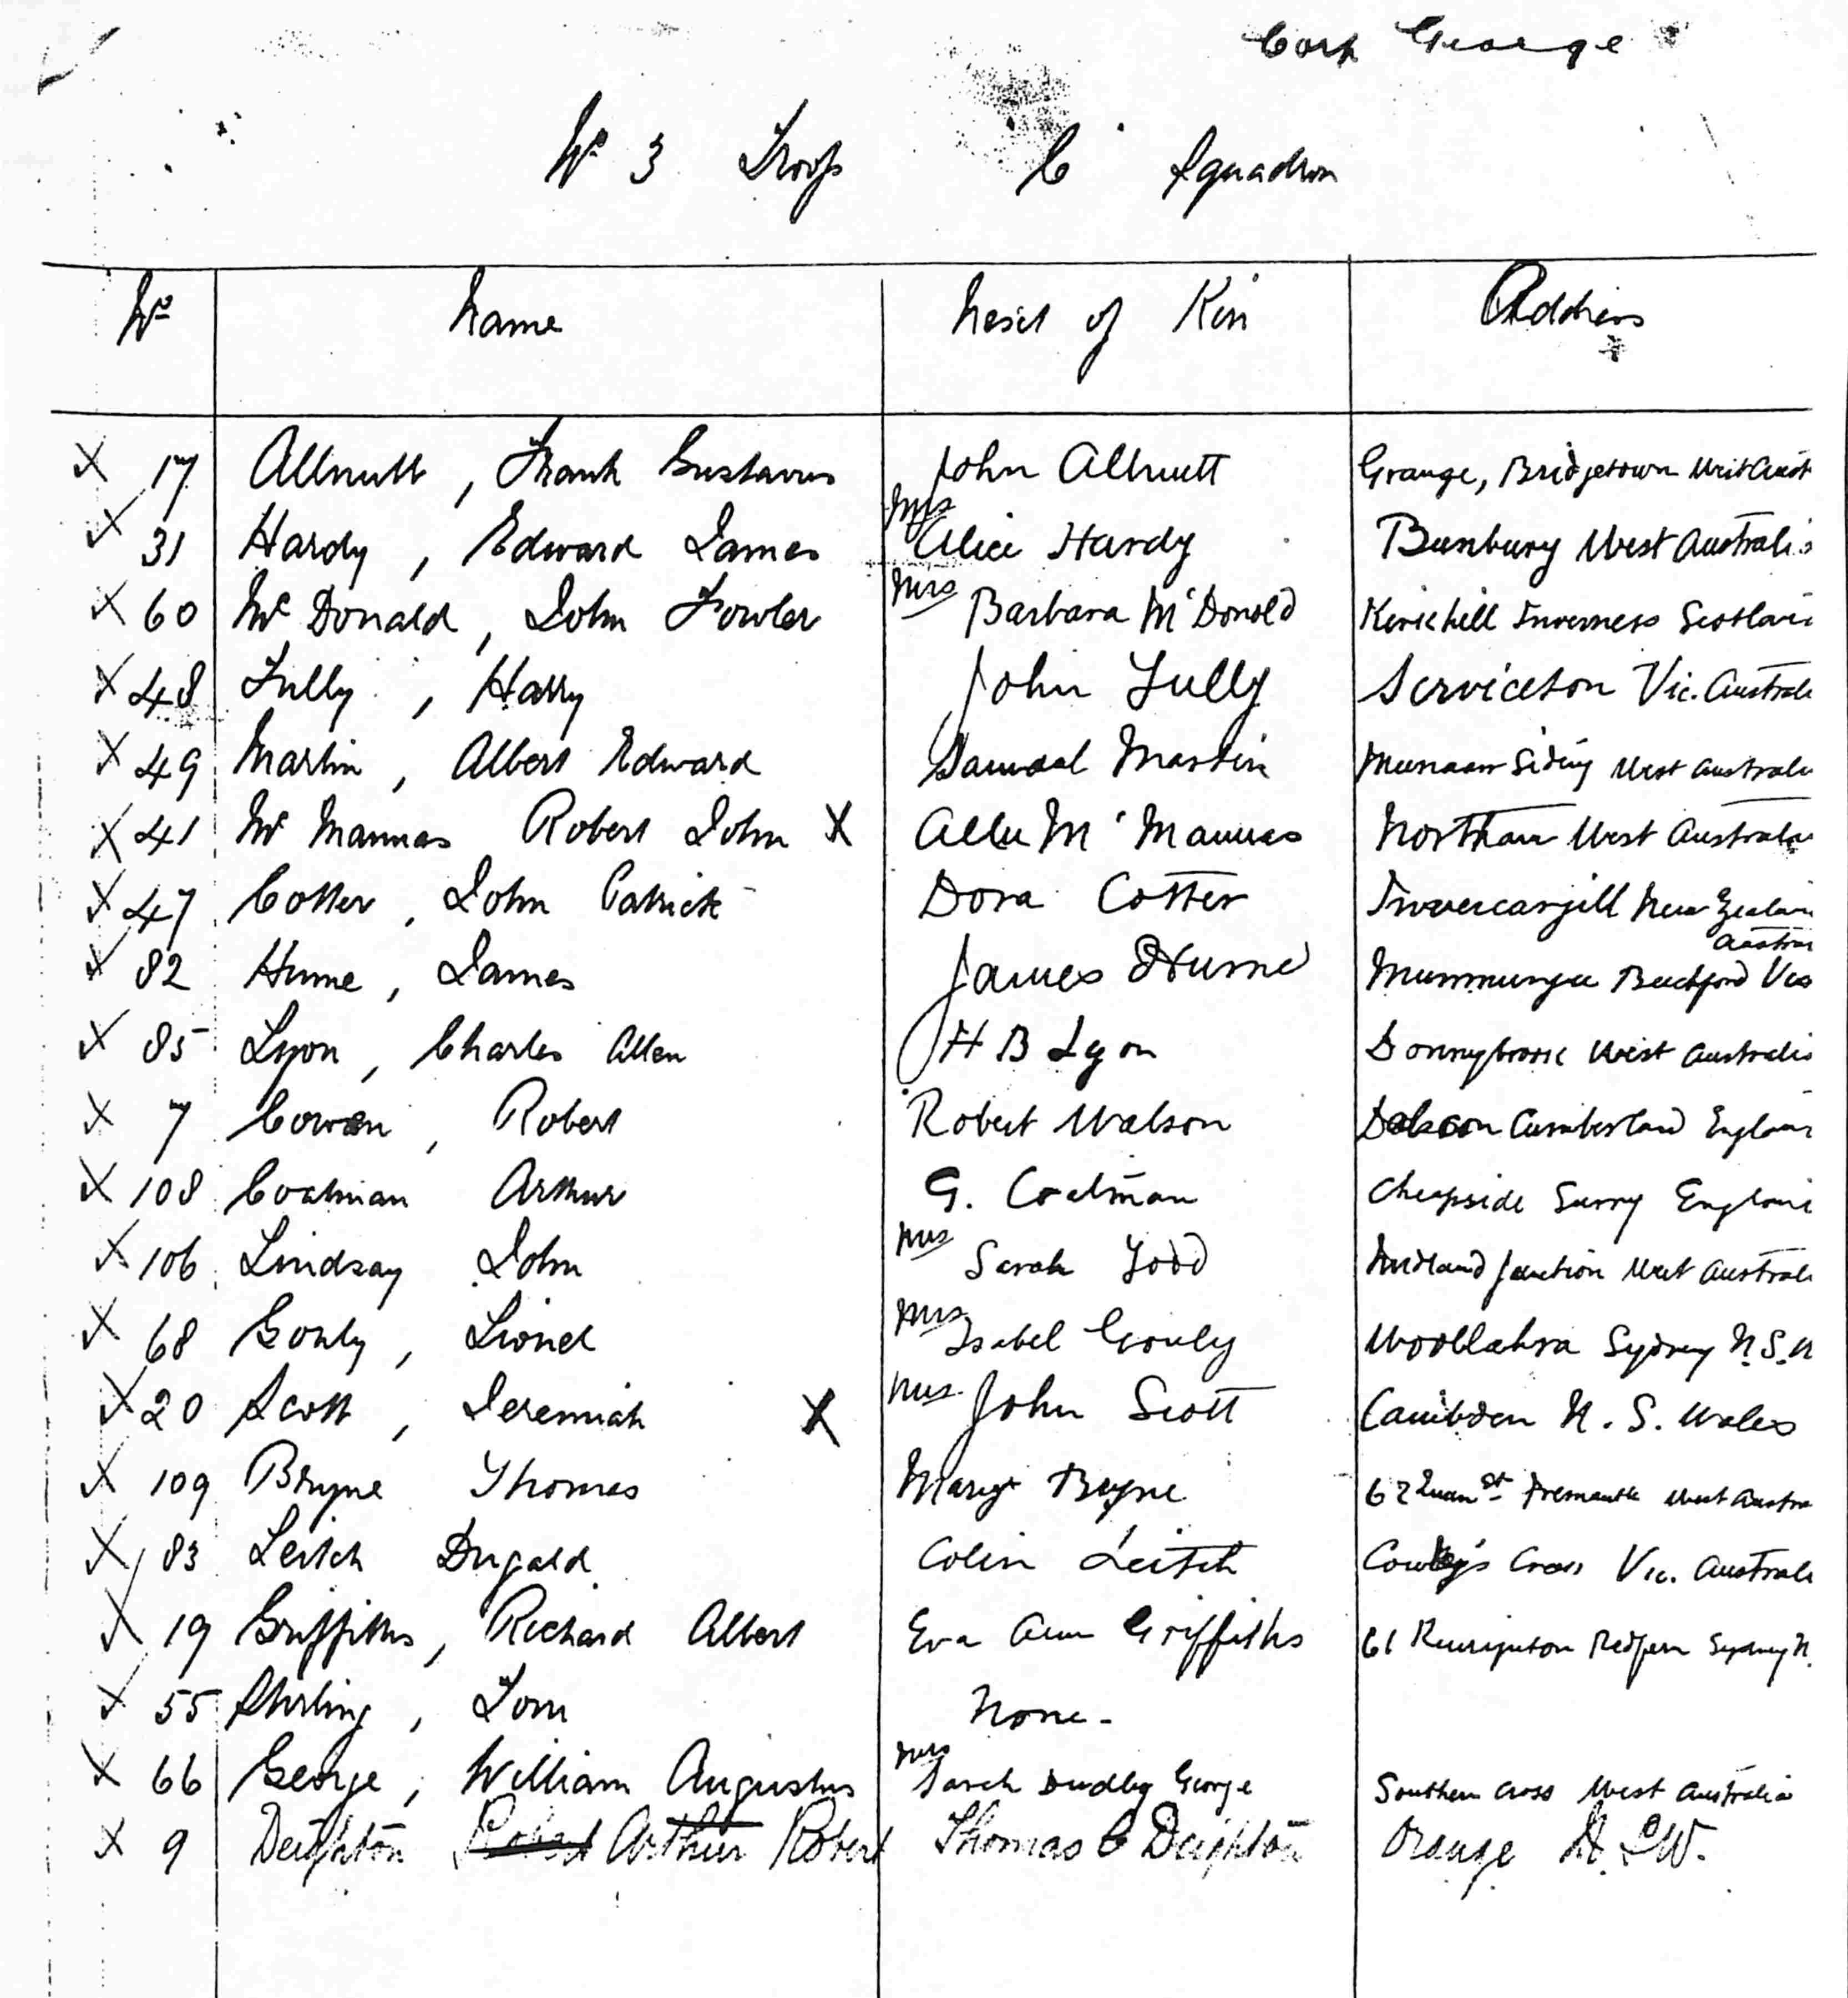 Corp George
No 3 Troop C Squadron
No Name Next of Kin Address
X 17 Allnutt, Frank Gustavus John Allnutt Grange, Bridgetown West Aust
X 31 Hardy, Edward James Mrs Alice Hardy Bunbury West Australia
X 60 McDonald, John Fowler Mrs Barbara McDonald Kirkhill Inverness Scotland
X 48 Tully, Harry John Tully Serviceton Vic. Austral
X 49 Martin, Albert Edward Samual Martin Siding West Australi
X 41 McMannas Robert John X McMannas Northam West Australi
X 47 Cotter, John Patrick Dora Cotter Invercargill New Zealan
Austra
X 82 Hume, James James Hume Vic
X 85 Lyon, Charles Allen H B Lyon Donnybrook West Australia
X 7 Cowen, Robert Robert Watson Cumberland England
X 108 Coatman Arthur G. Coatman Cheapside Surry England
X 106 Lindsay John Mrs Sarah Todd Midland Junction West Austral
X 68 Gouly, Lionel Mrs Isabel Gouly Woollahra Sydney N.S.W
X 20 Scott, Jeremiah X Mrs John Scott Cambden N. S. Wales
X 109 Bryne Thomas Mary Bryne 62 Queen St Fremantle West Austra
X 83 Leitch Dugald Colin Leitch Cross Vic. Austral
X 19 Griffiths, Richard Albert Eva Ann Griffiths 61 Redfern Sydney N.
X 55 Stirling, Tom None -
X 66 George, William Augustus Mrs Sarah Dudley George Southern Cross West Australia
X 9 Deighton Robert Arthur Robert Thomas C Deighton Orange N.S.W.